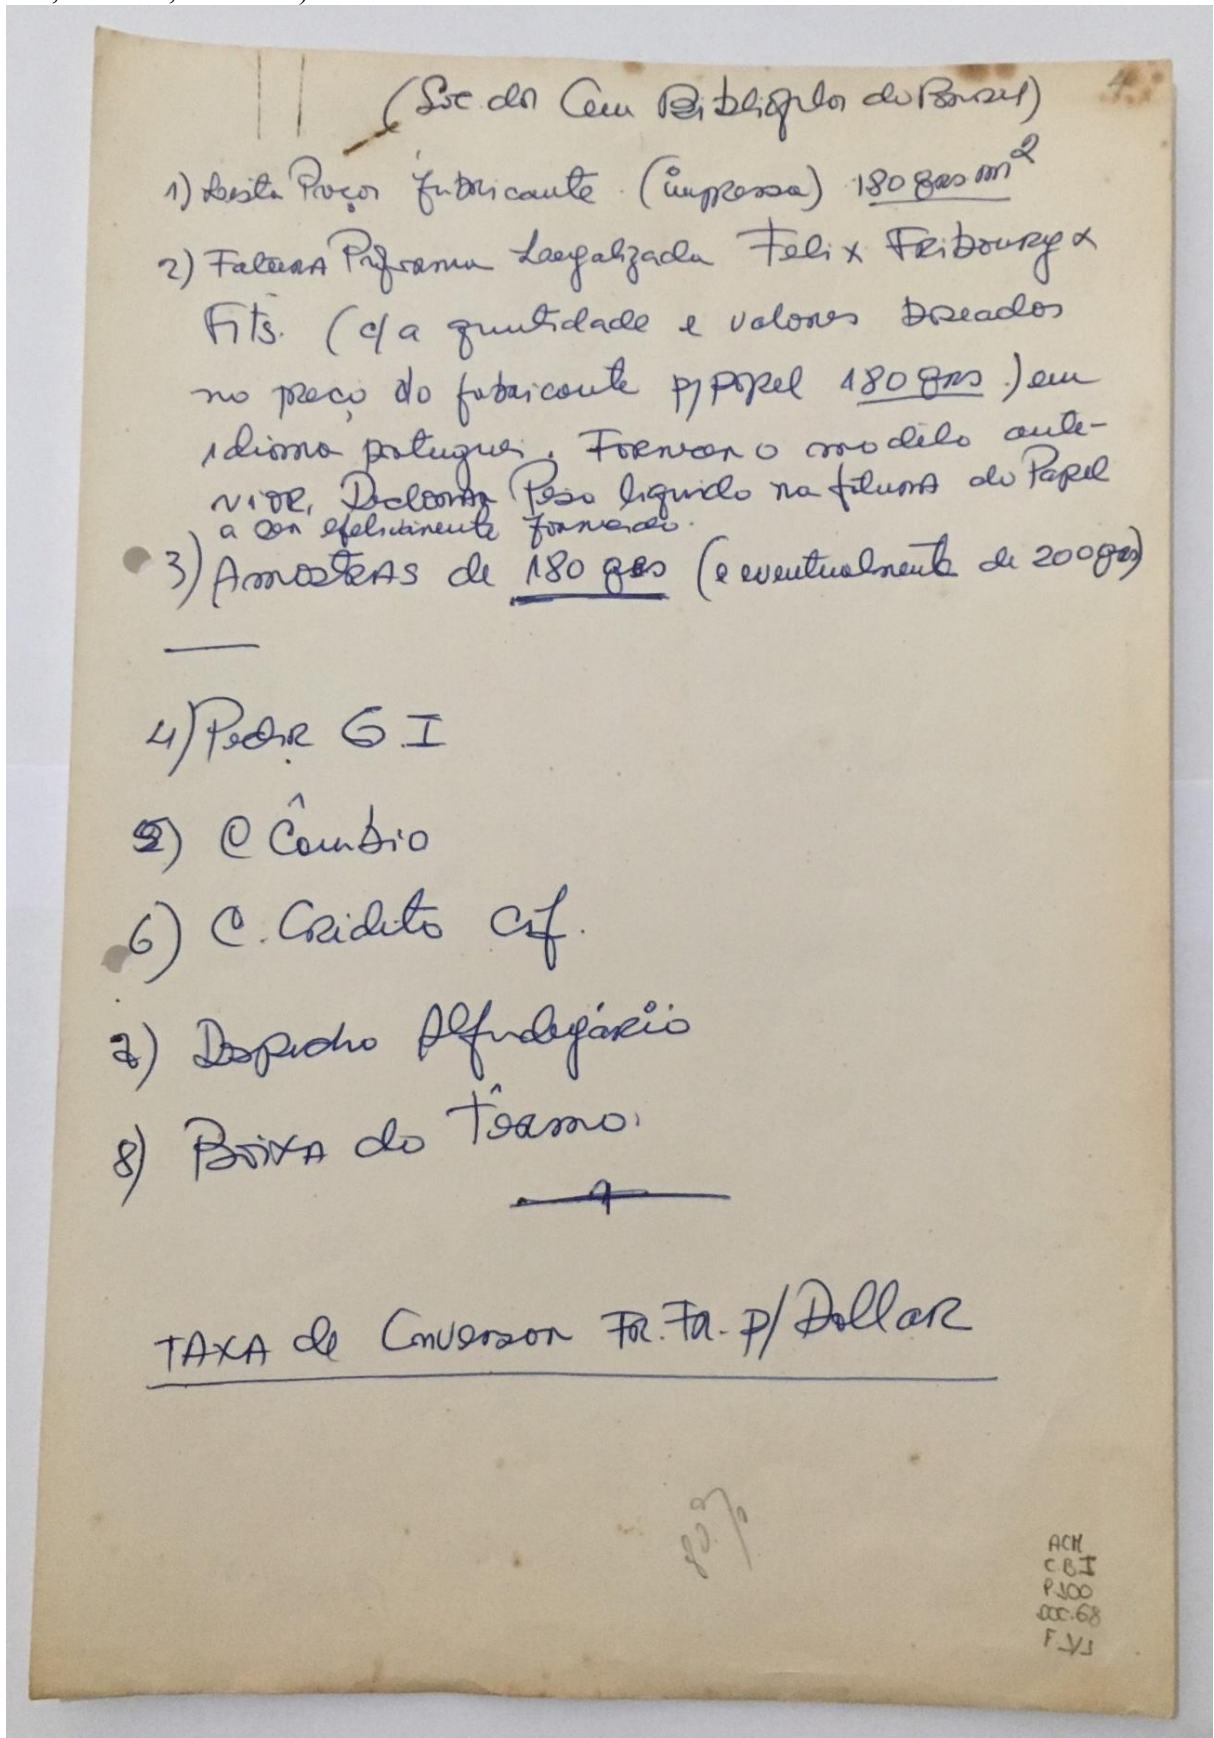 (Soc. dos Cem Bibliófilos do Brasil)
1) Lista Preços fabricante (impressa) 180 grs m²
2) Fatura Proforma Legalizada Felix Fribourg &
Fils. (c/a quantidade e valores baseados
no preço do fabricante p/ papel 180 grs.) em
idioma portugues. Fornecer o modelo ante-
rior. Declarar Peso liquido na fatura do Papel
a ser efetivamente fornecido.
3) Amostras de 180 grs (e eventualmente de 200 grs)
4) Pedir G.I
5) C Câmbio
6) C. Crédito Cif.
7) Despacho Alfndegário
8) Baixa do Têrmo.
TAXA de Converson Fr. Fr. p/ Dollar
ACM
CBI
P.100
DOC.68
F.1/1